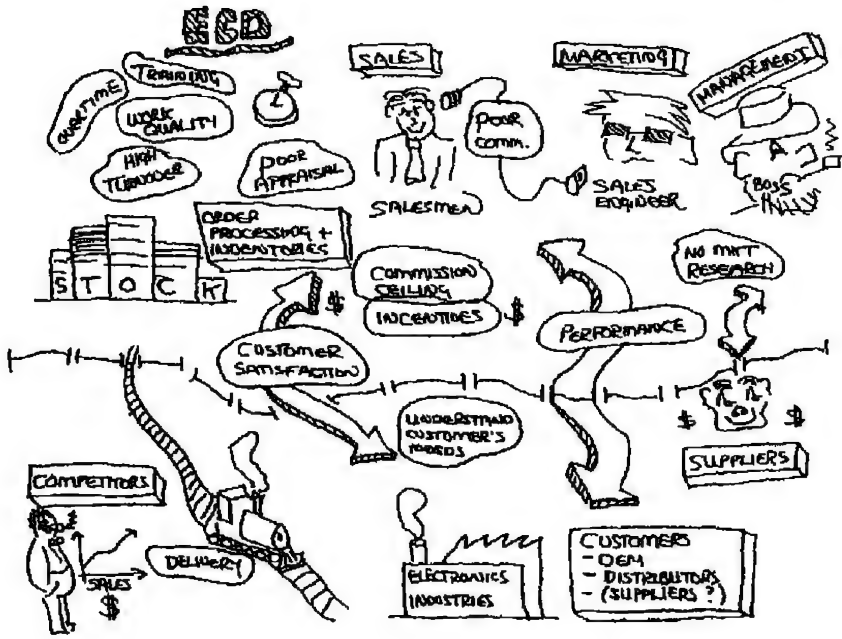 ECD
TRAINING
OVERTIME
WORK
QUALITY
HIGH
TURNOVER
POOR
APPRAISAL
SALES
SALESMEN
POOR
COMM.
MARKETING
SALES
ENGINEER
MANAGEMENT
BOSS
ORDER
PROCESSING +
INVENTORIES
STOCK
COMMISSION
CEILING
INCENTIVES
$
$
NO MKT
RESEARCH
PERFORMANCE
CUSTOMER
SATISFACTION
UNDERSTAND
CUSTOMER'S
NEEDS
$
$
SUPPLIERS
COMPETITORS
SALES
$
DELIVERY
ELECTRONICS
INDUSTRIES
CUSTOMERS
- OEM
- DISTRIBUTORS
- (SUPPLIERS ?)